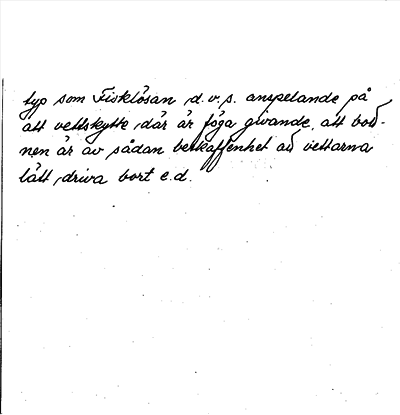 typ som Fisklösan d.v.s. anspelande på
att vettskytte där är föga givande, att bott-
nen är av sådan beskaffenhet att vettarna
lätt driva bort e.d.